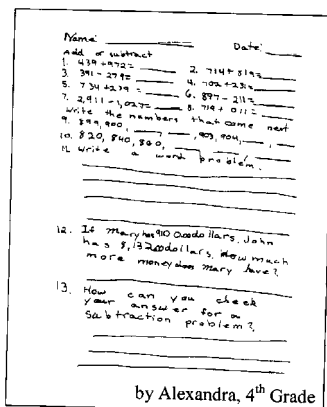 Name: ________ Date: ________
Add or subtract
1. 439 + 972 = ____ 2. 714 + 819 = ____
3. 391 - 279 = ____ 4. 702 + 231 = ____
5. 734 + 239 = ____ 6. 897 - 211 = ____
7. 2,911 - 1,027 = ____ 8. 719 + 011 = ____
Write the numbers that come next
9. 899, 900, ____, ____, 903, 904, ____, ____
10. 820, 840, 860, ____, ____, ____
11. Write a word problem.
12. If Mary has 910 dollars, John
has 8,132 dollars, How much
more money does Mary have?
13. How can you check
your answer for a
subtraction problem?
by Alexandra, 4th Grade